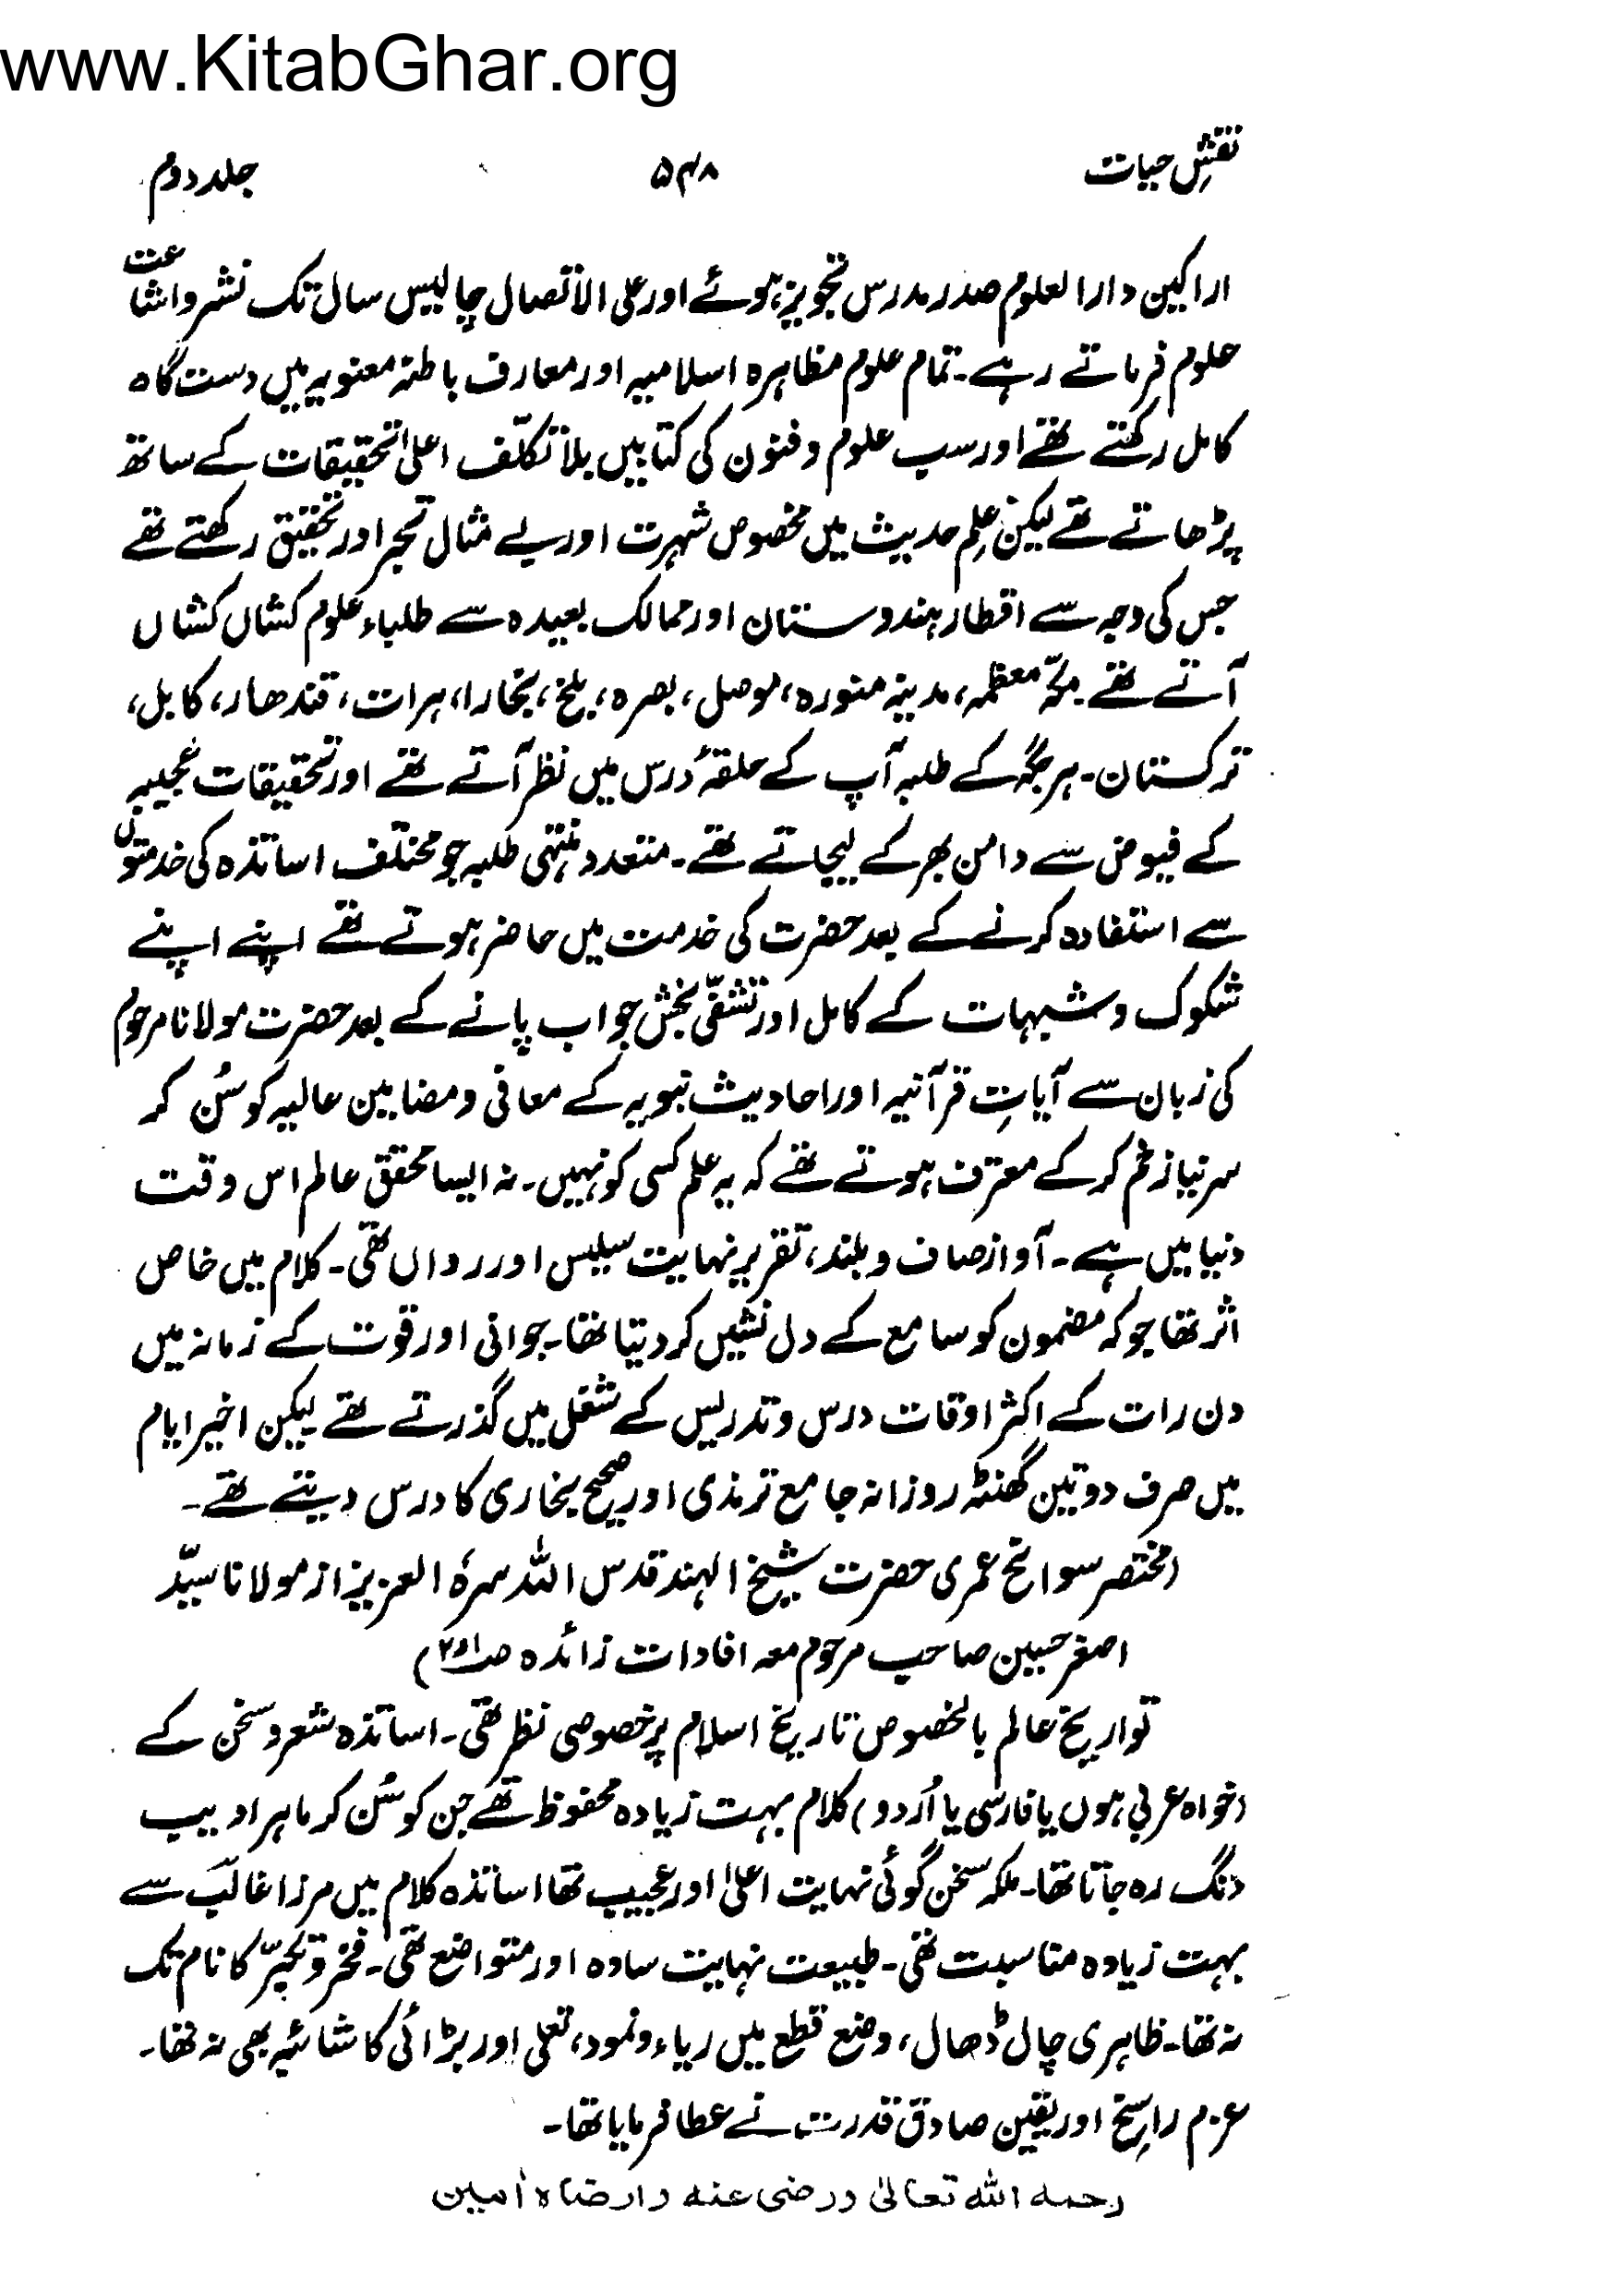 www.KitabGhar.org
نقشِ حیات ۵۴۸ جلد دوم
اراکین دارالعلوم صدر مدرس تجویز ہوئے اور علی الاتصال چالیس سال تک نشر و اشاعت
علوم فرماتے رہے۔ تمام علوم مظاہرہ اسلامیہ اور معارف باطنہ معنویہ میں دست گاہ
کامل رکھتے تھے اور سب علوم و فنون کی کتابیں بلاتکلّف اعلیٰ تحقیقات کے ساتھ
پڑھاتے تھے لیکن علمِ حدیث میں مخصوص شہرت اور بے مثال تبحر اور تحقیق رکھتے تھے
جس کی وجہ سے اقطار ہندوستان اور ممالک بعیدہ سے طلباء علوم کشاں کشاں
آتے تھے۔ مکّہ معظمہ، مدینہ منورہ، موصل، بصرہ، بلخ، بخارا، ہرات، قندھار، کابل،
ترکستان۔ ہر جگہ کے طلبہ آپ کے حلقۂ درس میں نظر آتے تھے اور تحقیقات عجیبہ
کے فیوض سے دامن بھر کے لیجاتے تھے۔ متعدد منتہی طلبہ جو مختلف اساتذہ کی خدمتوں
سے استفادہ کرنے کے بعد حضرت کی خدمت میں حاضر ہوتے تھے اپنے اپنے
شکوک و شبہات کے کامل اور تشفّی بخش جواب پانے کے بعد حضرت مولانا مرحوم
کی زبان سے آیاتِ قرآنیہ اور احادیث نبویہ کے معانی و مضامین عالیہ کو سُن کر
سر نیاز خم کر کے معترف ہوتے تھے کہ یہ علم کسی کو نہیں۔ نہ ایسا محقق عالم اس وقت
دنیا میں ہے۔ آواز صاف و بلند، تقریر نہایت سلیس اور رواں تھی۔ کلام میں خاص
اثر تھا جو کہ مضمون کو سامع کے دل نشیں کر دیتا تھا۔ جوانی اور قوت کے زمانہ میں
دن رات کے اکثر اوقات درس و تدریس کے شغل میں گذرتے تھے لیکن اخیر ایام
میں صرف دو تین گھنٹہ روزانہ جامع ترمذی اور صحیح بخاری کا درس دیتے تھے۔
(مختصر سوانح عمری حضرت شیخ الہند قدس اللہ سرہٗ العزیز از مولانا سیّد
اصغر حسین صاحب مرحوم معہ افادات زائدہ صـ ۱و۲)
تواریخ عالم بالخصوص تاریخ اسلام پر خصوصی نظر تھی۔ اساتذہ شعر و سخن کے
(خواہ عربی ہوں یا فارسی یا اُردو) کلام بہت زیادہ محفوظ تھے جن کو سُن کر ماہر ادیب
دنگ رہ جاتا تھا۔ ملکہ سخن گوئی نہایت اعلیٰ اور عجیب تھا اساتذہ کلام میں مرزا غالبؔ سے
بہت زیادہ مناسبت تھی۔ طبیعت نہایت سادہ اور متواضع تھی۔ فخر و تکبّر کا نام تک
نہ تھا۔ ظاہری چال ڈھال، وضع قطع میں ریاء و نمود، تعلی اور بڑائی کا شائبہ بھی نہ تھا۔
عزم راسخ اور یقین صادق قدرت نے عطا فرمایا تھا۔
رحمه الله تعالیٰ ورضی عنه وارضاه اٰمین